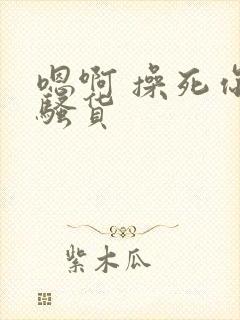 嗯啊 操死你
骚货
紫木瓜